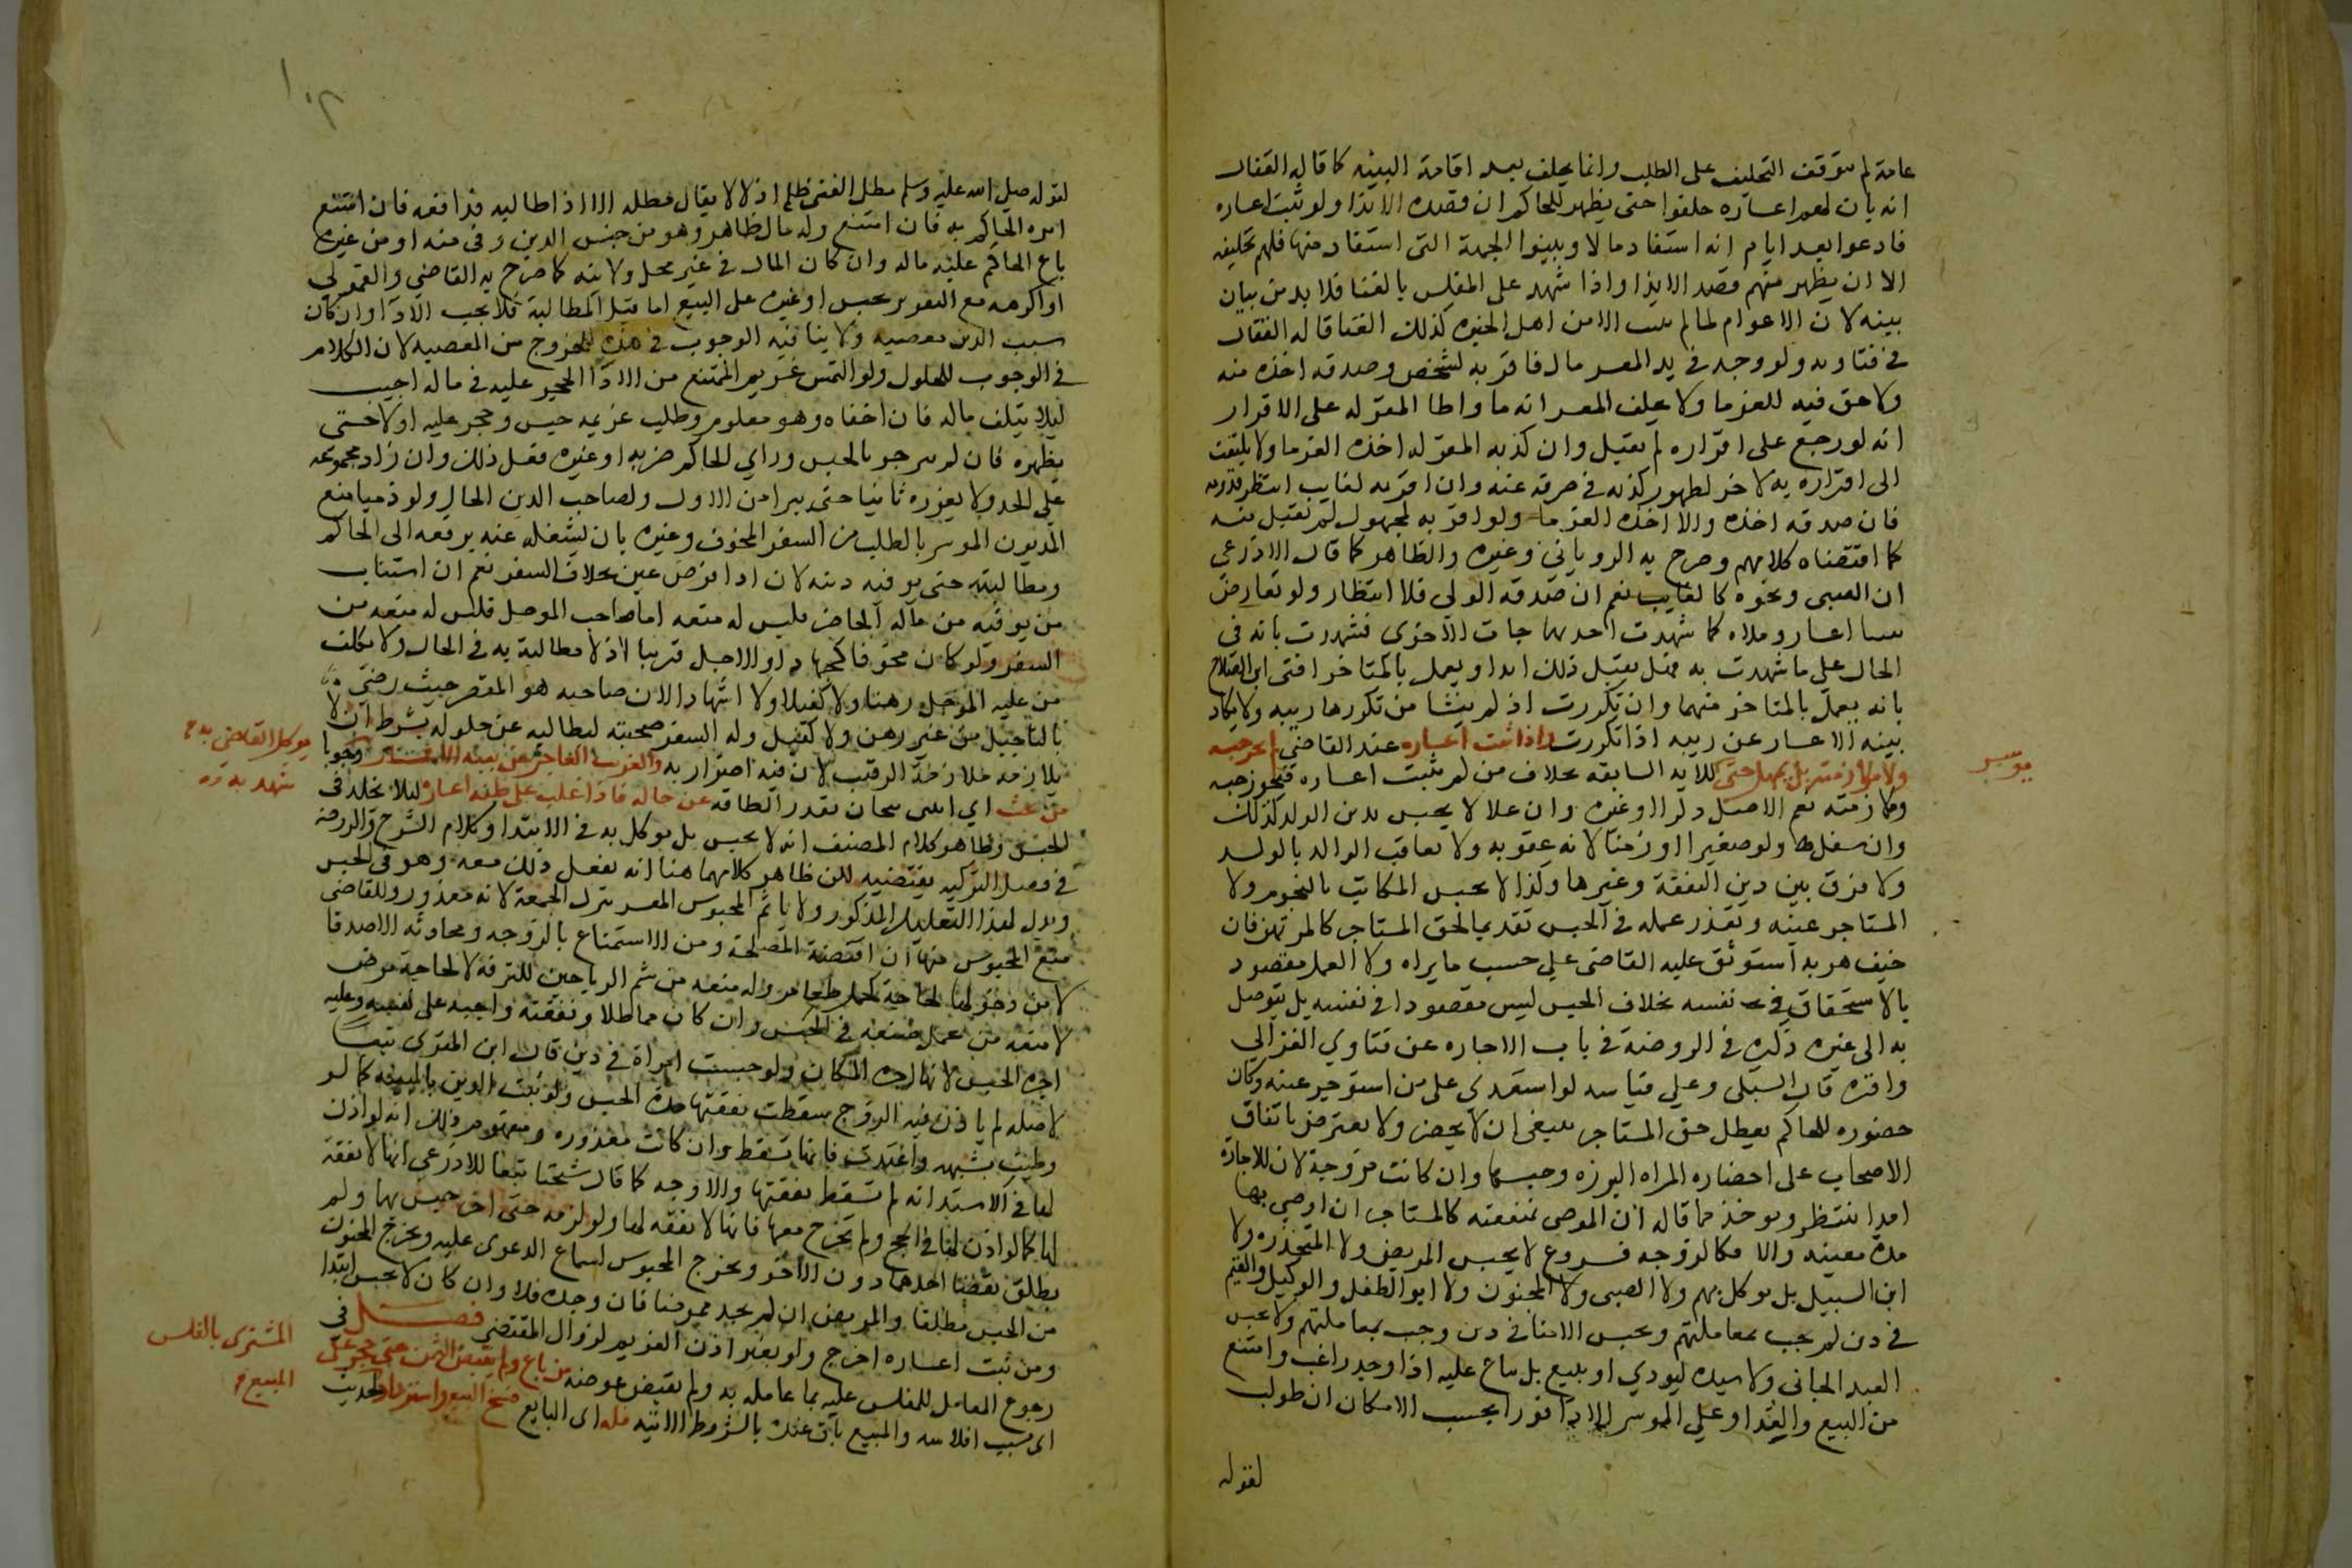 عامة لم يتوقف التحليف على الطلب وانما يحلف بعد اقامة البينه كما قاله القفال
انه بان لهم اعساره حلفوا حتى يظهر للحاكم ان قصده الايذا ولو ثبت اعساره
فادعوا بعد ايام انه استفاد مالا وبينوا الجهة التى استفاد منها فلهم تحليفه
الا ان يظهر منهم قصد الايذا واذا شهد على المفلس بالغنا فلا بد من بيان
سببه لان الاعدام لما لم يثبت الا من اهل الخبره كذلك الغنا قاله القفال
فى فتاويه ولو وجد فى يد المعسر مال فاقر به لشخص وصدقه اخذه منه
ولا حق فيه للغرما ولا يحلف المعسر انه ما واطا المقر له على الاقرار
انه لو رجع على اقراره لم يقبل وان كذبه المقر له اخذه الغرما ولا يلتفت
الى اقراره به لاخر لظهور كذبه فى صرفه عنه وان اقر به لغايب انتظر قدومه
فان صدقه اخذه والا اخذه الغرما ولو اقر به لمجهول لم يقبل منه
كما اقتضاه كلامهم وصرح به الرويانى وغيره والظاهر كما قال الاذرعى
ان الصبى ونحوه كالغايب نعم ان صدقه الولى فلا انتظار ولو تعارض
بينتا اعسار وملاه كما شهدت احديهما جات الاخرى فشهدت بانه فى
الحال على ما شهدت به فهل يقبل ذلك ابدا ويعمل بالمتاخر افتى ابن الصلاح
بانه يعمل بالمتاخر منهما وان تكررت اذ لم ينشا من تكررها ريبه ولا يكاد
بينه الاعسار عن ريبه اذا تكررت واذا ثبت اعساره عند القاضى لم يجز حبسه
ولا ملازمته بل يمهل حتى للايه السابقه بخلاف من لم يثبت اعساره فيجوز حبسه
يوسر
وملازمته نعم الاصل ذكرا او غيره وان علا لا يحبس بدين الولد كذلك
وان سفل ولو صغيرا او زمنا لانه عقوبه ولا يعاقب الوالد بالولد
ولا فرق بين دين النفقة وغيرها وكذا لا يحبس المكاتب بالنجوم ولا
المستاجر عينه وتعذر عمله فى الحبس تقديما لحق المستاجر كالمرتهن فان
خيف هربه استوثق عليه القاضى على حسب ما يراه ولا العمل مقصود
بالاستحقاق فى نفسه بخلاف الحبس ليس مقصودا فى نفسه بل يتوصل
به الى غيره ذكره فى الروضة فى باب الاجاره عن فتاوي الغزالى
واقره قال السبكى وعلى قياسه لو استعدى على من استوجر عينه وكان
حضوره للحاكم يعطل حق المستاجر ينبغى ان لا يحضر ولا يعترض باتفاق
الاصحاب على احضاره المراه البرزه وحبسها وان كانت مزوجة لان للاجارة
امدا ينتظر ويوخذ مما قاله ان الموصى بمنفعته كالمستاجر ان اوصى بها
مدة معينه والا فكالزوجه فروع لا يحبس المريض ولا المخدره ولا
ابن السبيل بل يوكل بهم ولا الصبى ولا المجنون ولا ابو الطفل والوكيل والقيم
فى دين لم يجب بمعاملتهم ويحبس الامنا فى دين وجب بمعاملتهم ولا يحبس
العبد الجانى ولا سيده ليودي او يبيع بل يباع عليه اذا وجد راغب وامتنع
من البيع والفدا وعلى الموسر الادا فورا بحسب الامكان ان طولب
لقوله
١٠٢
لقوله صلى الله عليه وسلم مطل الغنى ظلم اذ لا يقال مطله الا اذا طالبه فدافعه فان امتنع
امره الحاكم به فان امتنع وله مال ظاهر وهو من جنس الدين وفى منه او من غيره
باع الحاكم عليه ماله وان كان المال فى غير محل ولايته كما صرح به القاضى والقمولى
او اكرهه مع التعزير بحبس او غيره على البيع اما قبل المطالبة فلا يجب الادا وان كان
سبب الدين معصيه ولا ينافيه الوجوب فى هذه للخروج من المعصيه لان الكلام
فى الوجوب للحلول ولو التمس غريم الممتنع من الادا الحجر عليه فى ماله اجيب
ليلا يتلف ماله فان اخفاه وهو معلوم وطلب غريمه حبس وحجر عليه اولا حتى
يظهره فان لم ينزجر بالحبس وراي الحاكم ضربه او غيره فعل ذلك وان زاد مجموعه
على الحد ولا يعزره ثانيا حتى يبرا من الاول ولصاحب الدين الحال ولو ذميا منع
المديون الموسر بالطلب من السفر المخوف وغيره بان يشغله عنه برفعه الى الحاكم
ومطالبته حتى يوفيه دينه لان ادا فرض عين بخلاف السفر نعم ان استناب
من يوفيه من ماله الحاضر فليس له منعه اما صاحب الموجل فليس له منعه من
السفر ولو كان مخوفا كجهاد او الاجل قريبا اذ لا مطالبة به فى الحال ولا يكلف
من عليه الموجل رهنا ولا كفيلا ولا اشهادا لان صاحبه هو المقصر حيث رضى
بالتاجيل من غير رهن ولا كفيل وله السفر صحبته ليطالبه عن حلوله بشرط ان لا
يلازمه ملازمة الرقيب لان فيه اضرار به والغريب العاجز عن بينه الاعسار وجوبا
يوكل القاضى به
من يبحث اي اثنين يبحثان بقدر الطاقه عن حاله فاذا غلب على ظنه اعساره ليلا يخلد فى
شهد به
الحبس وظاهر كلام المصنف انه لا يحبس بل يوكل به فى الابتدا وكلام الشرح والروضة
فى فصل التزكيه يقتضيه لكن ظاهر كلامهما هنا انه يفعل ذلك معه وهو فى الحبس
ويدل لهذا التعليل المذكور ولا ياثم المحبوس المعسر بترك الجمعة لانه معذور وللقاضى
منع المحبوس منها ان اقتضته المصلحة ومن الاستمتاع بالزوجه ومحادثه الاصدقا
لا من دخولها لحاجة كحمل طعام وله منعه من شم الرياحين للترفه لا لحاجة مرض
لا منعه من عمل صنعه فى الحبس وان كان مماطلا ونفقته واجبه على نفسه وعليه
اجره الحبس لانها اجره المكان ولو حبست امراة فى دين قال ابن المقرى تبعا
لاصله لم ياذن فيه الزوج سقطت نفقتها مدة الحبس ولو ثبت الدين بالبينه كما لو
وطيت بشبهه واعتدت فانها تسقط وان كانت معذوره ومفهوم ذلك انه لو اذن
لها فى الاستدانه لم تسقط نفقتها والاوجه كما قال شيخنا تبعا للاذرعى انها لا نفقة
لها كما لو اذن لها فى الحج ولم يخرج معها فانها لا نفقه لها ولو لزمه حق اخر حبس بهما ولم
يطلق بقضا احدهما دون الاخر ويخرج المحبوس لسماع الدعوى عليه ويخرج المجنون
من الحبس مطلقا والمريض ان لم يجد ممرضا فان وجده فلا وان كان لا يحبس ابتدا
ومن ثبت اعساره اخرج ولو بغير اذن الغريم لزوال المقتضى فصل فى
رجوع المعامل للمفلس عليه بما عامله به ولم يقبض عوضه من باع ولم يقبض الثمن حتى حجر على
المشترى بالفلس
اى بسبب افلاسه والمبيع باق عنده بالشروط الاتيه فله اى البايع فسخ البيع واسترداد لحديث
المبيع